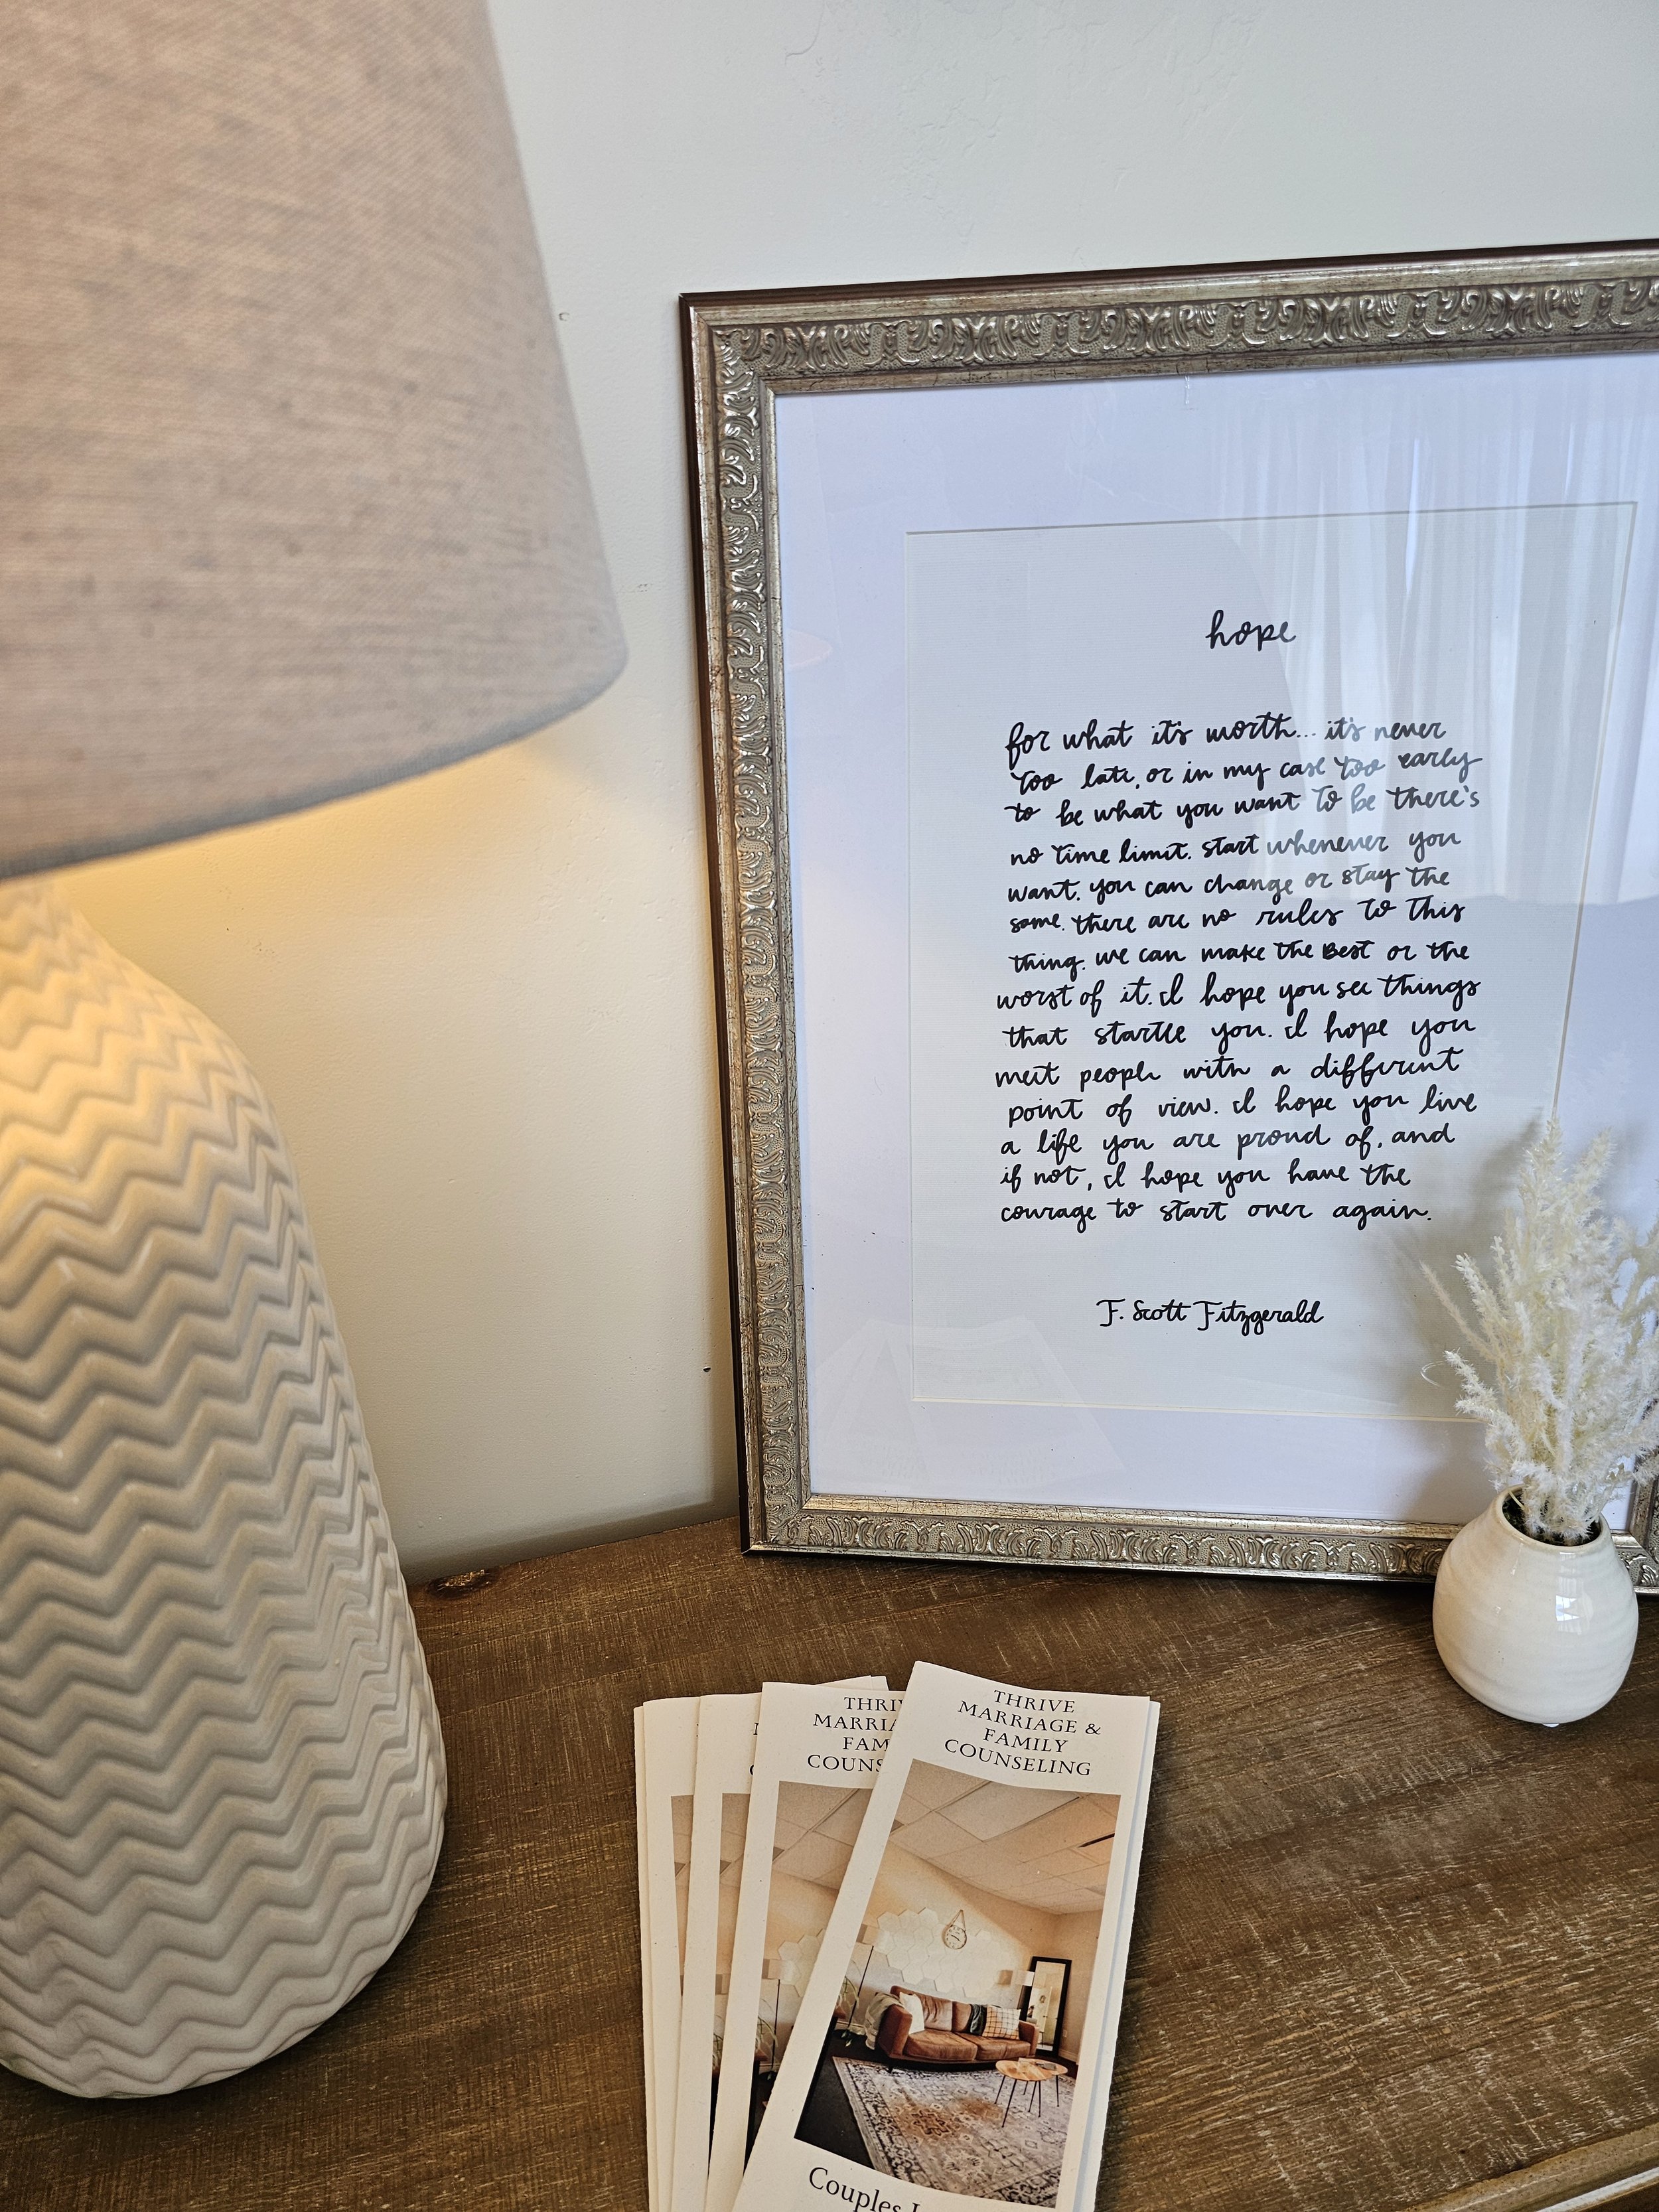 hope
for what it's worth... it's never
too late, or in my case too early
to be what you want to be there's
no time limit. start whenever you
want. you can change or stay the
same. there are no rules to this
thing. we can make the Best or the
worst of it. I hope you see things
that startle you. I hope you
meet people with a different
point of view. I hope you live
a life you are proud of, and
if not, I hope you have the
courage to start over again.
F. Scott Fitzgerald
THRIVE
MARRIAGE &
FAMILY
COUNSELING
THRIV
MARRIA
FAM
COUNS
Couples